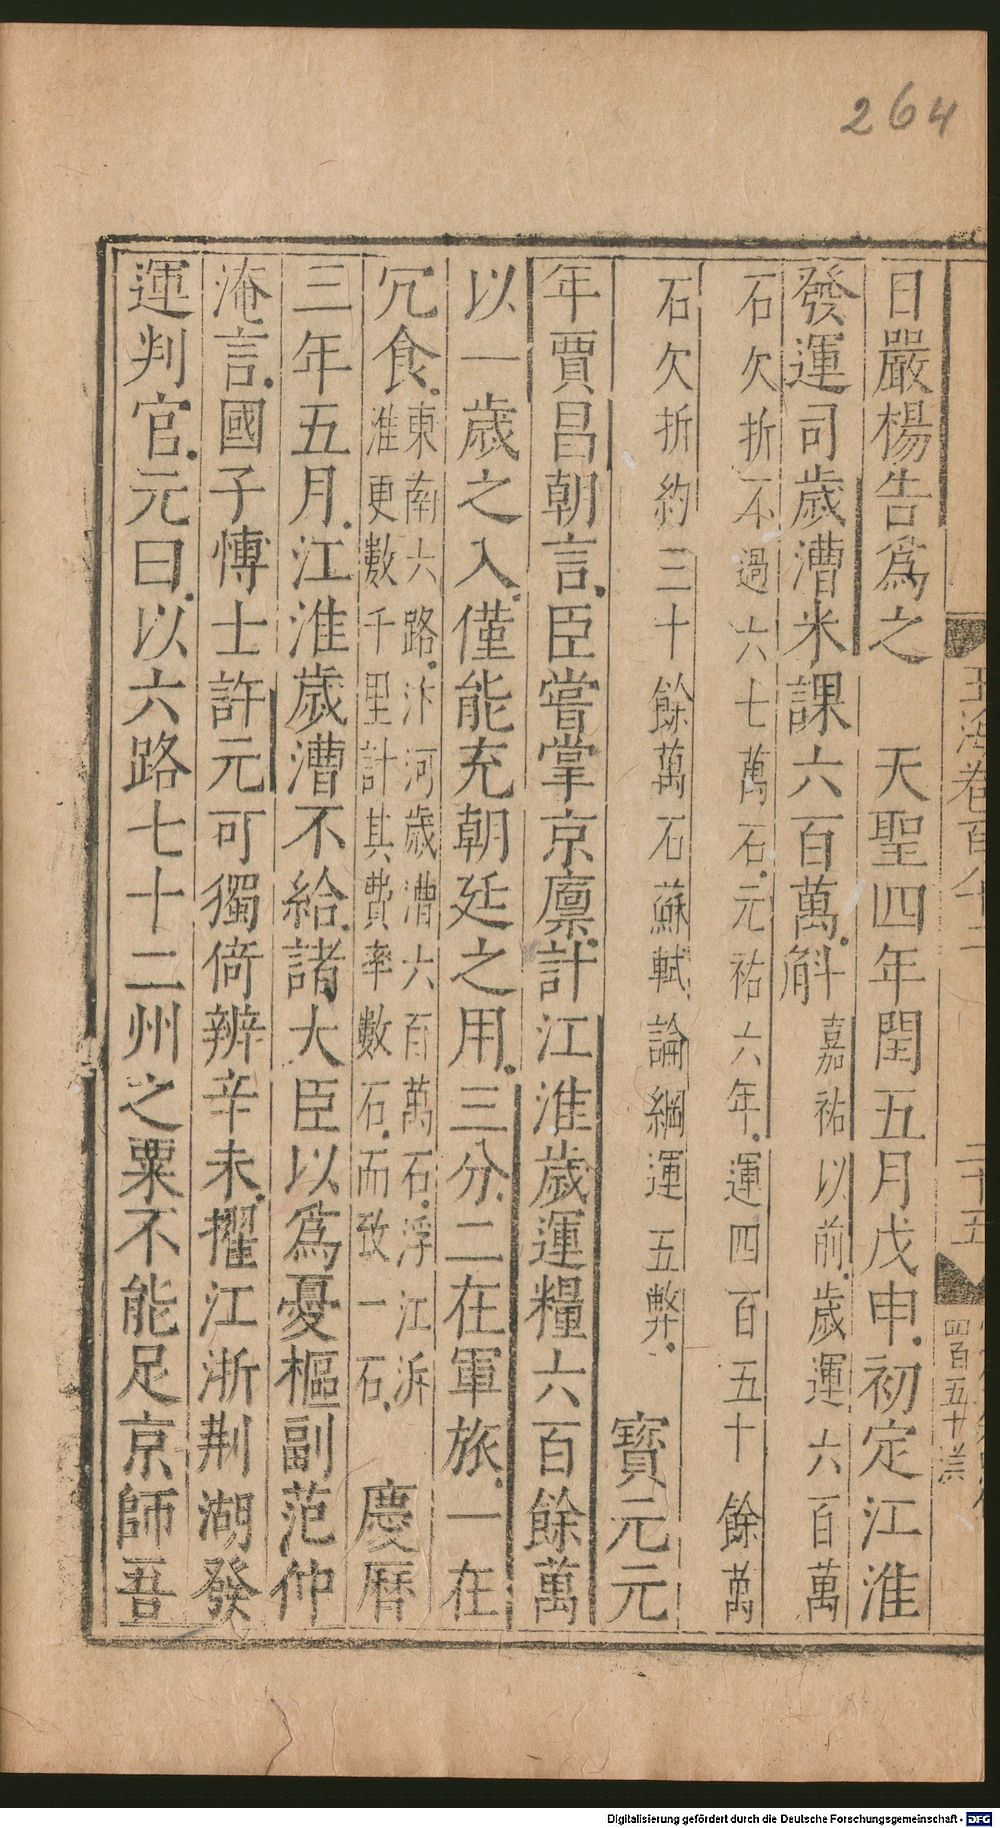 264
玉海卷百八十二
二十五
四百五十
日嚴楊告爲之　天聖四年閏五月戊申初定江淮
發運司歲漕米課六百萬斛嘉祐以前歲運六百萬
石欠折不過六七萬石元祐六年運四百五十餘萬
石欠折約三十餘萬石蘇軾論綱運五弊　寳元元
年賈昌朝言臣嘗掌京廪計江淮歲運糧六百餘萬
以一歲之入僅能充朝廷之用三分二在軍旅一在
冗食東南六路汴河歲漕六百萬石浮江泝
淮更數千里計其費率數石而致一石　慶曆
三年五月江淮歲漕不給諸大臣以爲憂樞副范仲
淹言國子博士許元可獨倚辨辛未擢江浙荆湖發
運判官元曰以六路七十二州之粟不能足京師吾
Digitalisierung gefördert durch die Deutsche Forschungsgemeinschaft - DFG